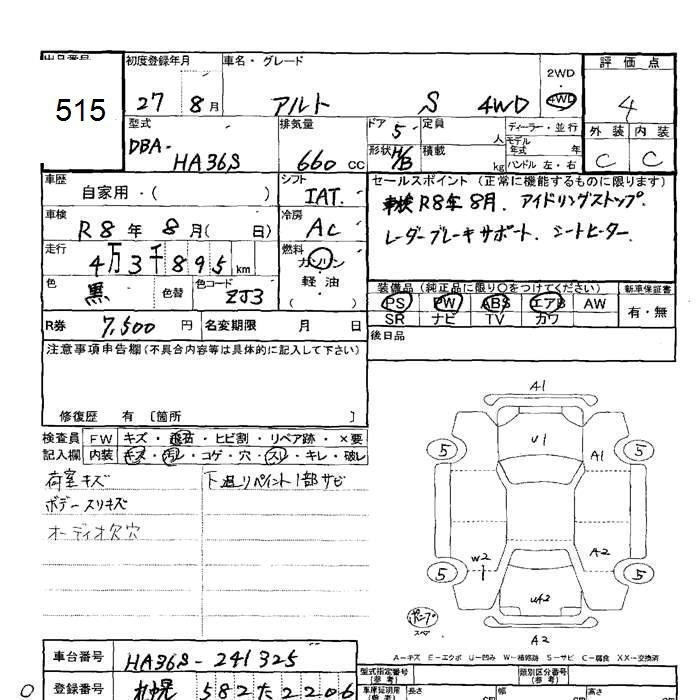 出品番号
515
初度登録年月 車名・グレード 2WD 評価点
27 8月 アルト S 4WD 4WD 4
型式 排気量 ドア 5 定員 人 ディーラー・並行 外装 内装
DBA-
HA36S 660 CC 形状 H/B 積載 kg モデル年式 年 ハンドル 左・右 C C
車歴 シフト セールスポイント (正常に機能するものに限ります)
自家用・( ) IAT. 車検 R8年 8月. アイドリングストップ.
車検 冷房 レーダーブレーキサポート. シートヒーター.
R8年 8月( 日) AC
走行 燃料
4万3千895 km ガソリン
色 色替 色コード 軽油 装備品 (純正品に限り○をつけてください) 新車保証書
黒 ZJ3 ( ) PS PW ABS エアB AW 有・無
R券 7,500 円 名変期限 月 日 SR ナビ TV カワ
注意事項申告欄(不具合内容等は具体的に記入して下さい) 後日品
修復歴 有 〔箇所 〕
検査員 FW キズ・飛石・ヒビ割・リペア跡・×要
記入欄 内装 キズ・汚レ・コゲ・穴・スレ・キレ・破レ
荷室キズ 下廻りペイント1部サビ
ボデースリキズ
オーディオ欠穴
A1
U1
5 A1 5
W2 A2
5 1 5
U42
パンプ
スペア A2
A－キズ E－エクボ U－凹み W－補修跡 S－サビ C－腐食 XX－交換済
車台番号 HA36S-241325
型式指定番号(参考) 類別区分番号(参考)
登録番号 札幌 582た2206
車庫証明用(参考) 長さ cm 幅 cm 高さ cm